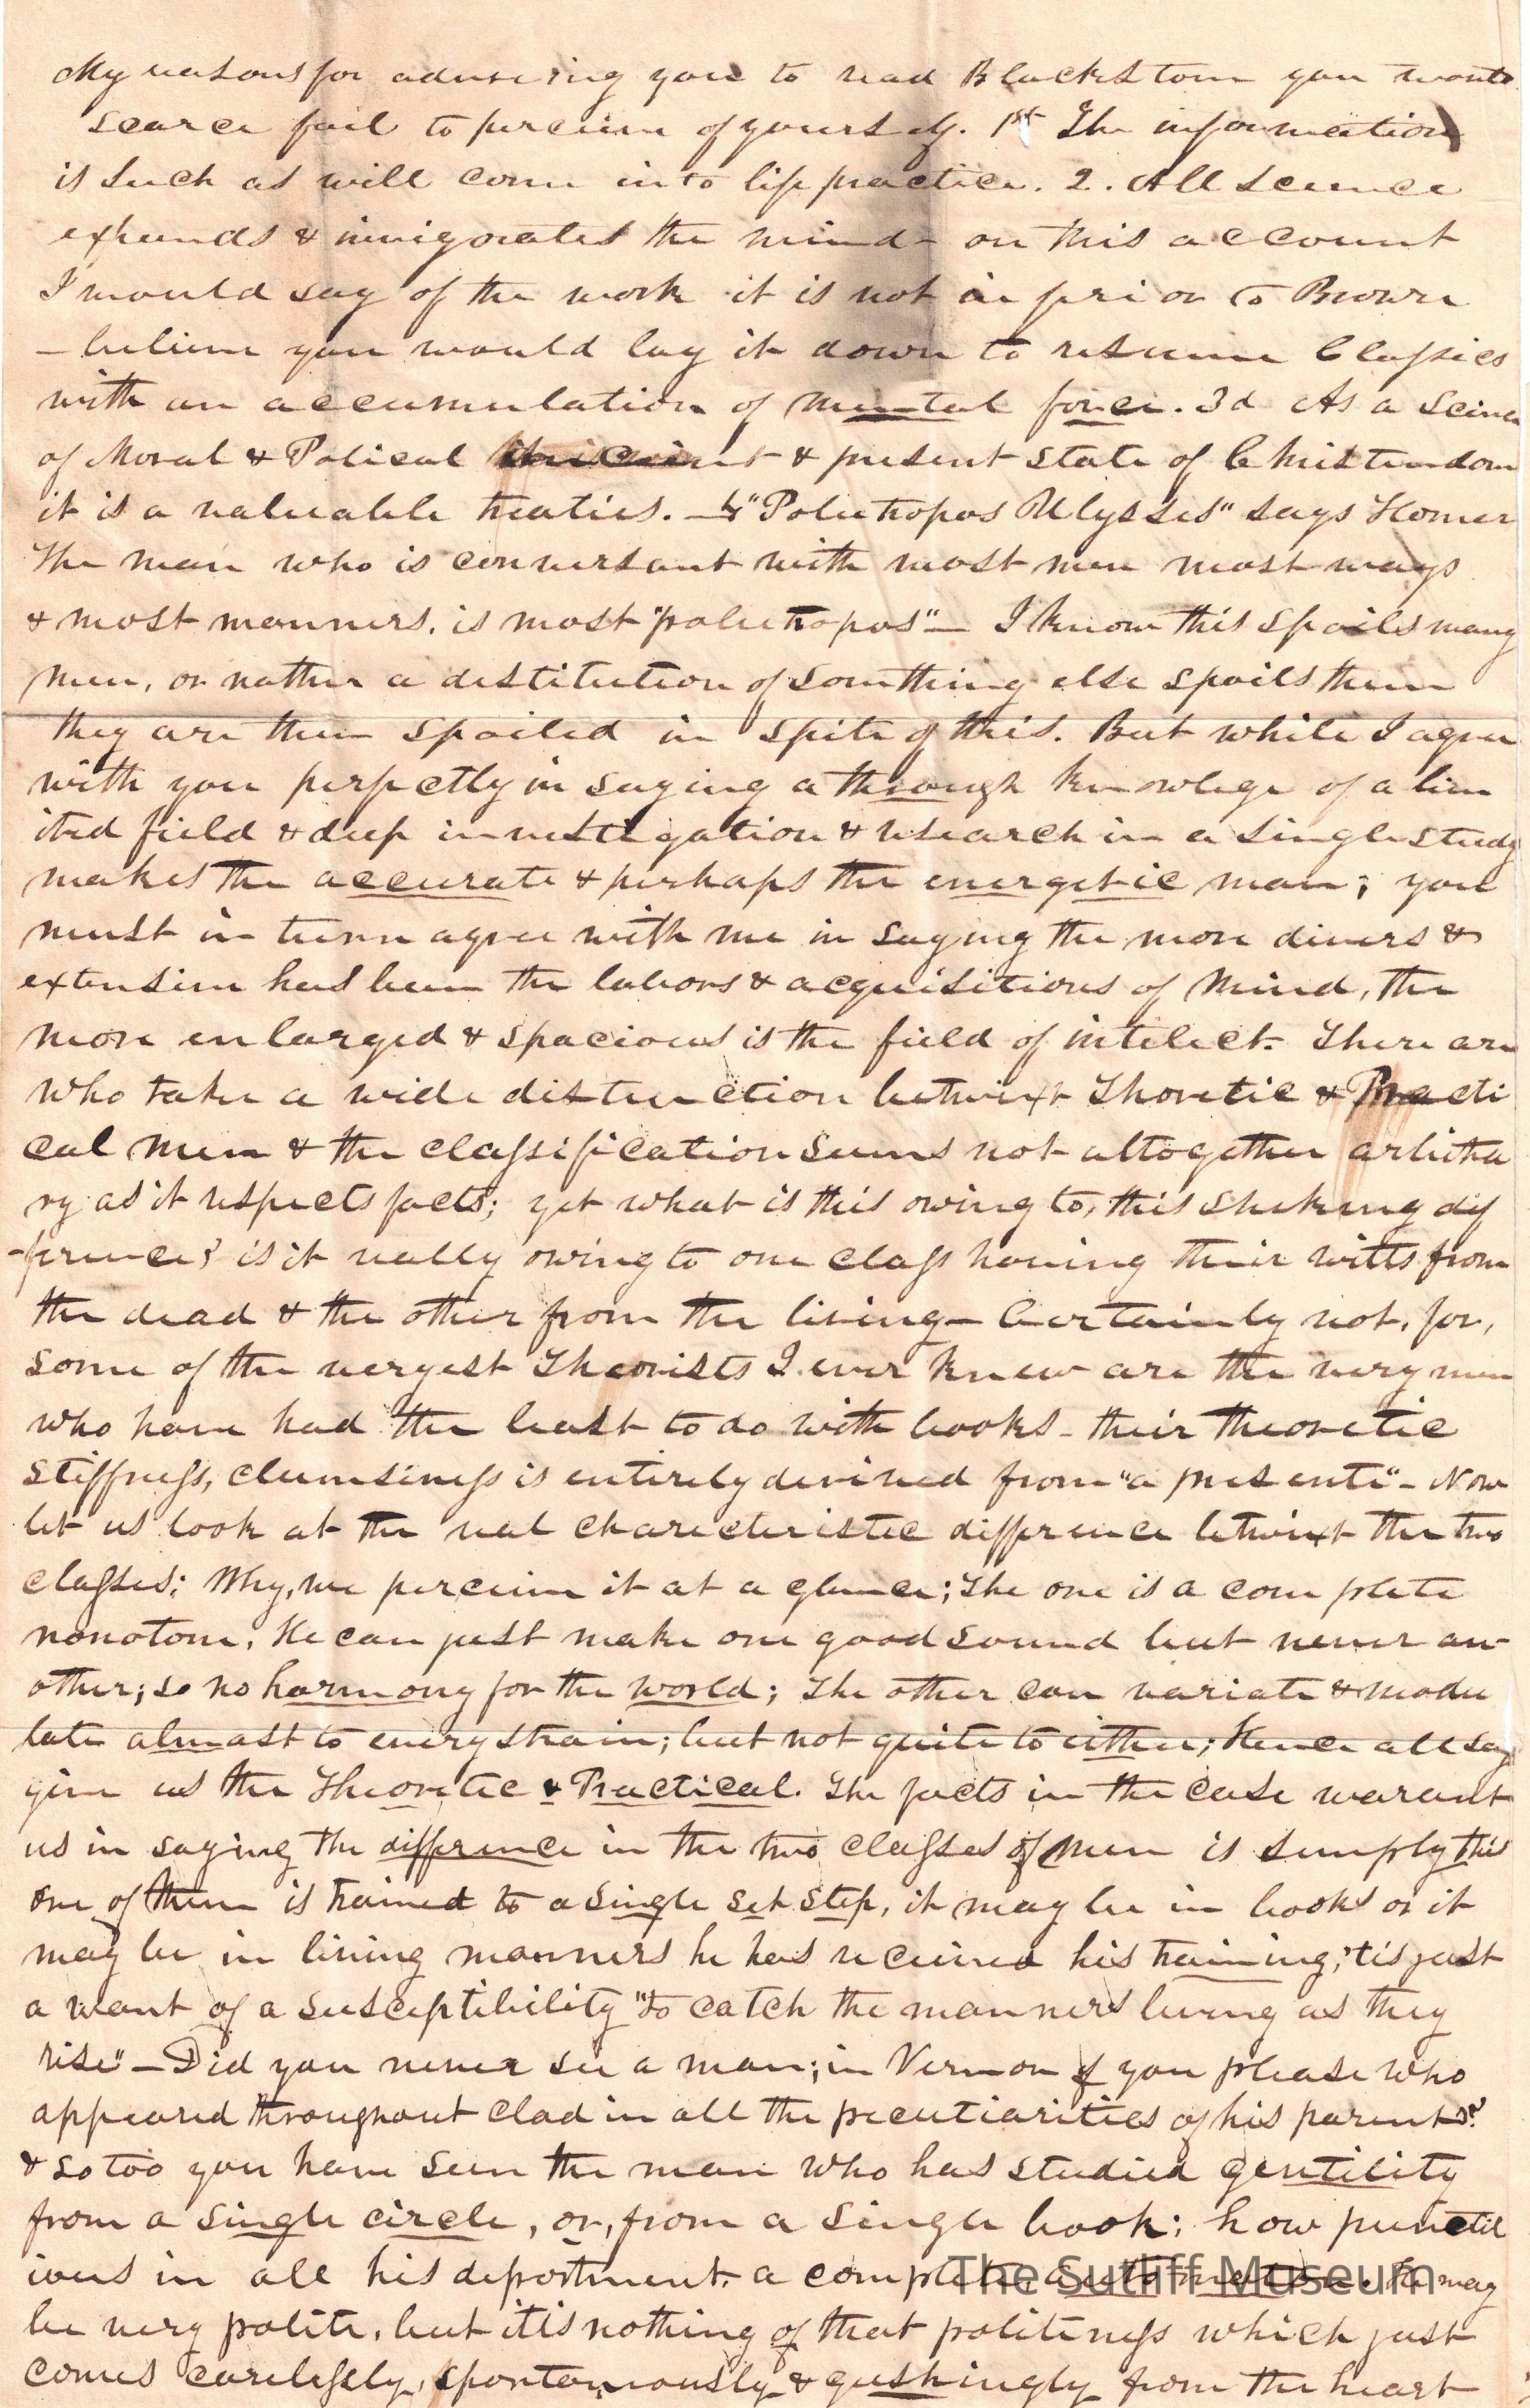 My reasons for adviseing you to read Blackstone you would
scarce fail to perceive of yourself. 1st The information
is such as will come into life practice. 2. All science
expands & invigorates the mind - on this account
I would say of the work it is not inferior to Brown
- believe you would lay it down to resume Classics
with an accumulation of mental force. 3d As a Science
of Moral & Polical & present state of Christendom
it is a valuable treaties. — "Polutropos Ulysses" says Homer
The man who is conversant with most men most ways
& most manners. is most "polutropos" — I know this spoils many
men, or rather a destitution of something else spoils them
they are then spoiled in spite of this. But while I agree
with you perfectly in saying a through knowlege of a lim
ited field & deep investigation & research in a single study
makes the accurate & perhaps the energetic man; you
must in turn agree with me in saying the more divers &
extensive has been the labors & acquisitions of mind, the
more enlarged & spacious is the field of intelect. There are
who take a wide distinction betwixt Thoretic & Practi
cal men & the classification seems not altogether arbitra
ry as it respects facts; yet what is this owing to, this stricking dif
-ference? is it really owing to one class having their witts from
the dead & the other from the living — Certainly not, for,
some of the veryest Theorists I ever knew are the very men
who have had the least to do with books - their theoretic
stiffness, clumsiness is entirely derived from "a presenti" - Now
let us look at the real charecteristic difference betwixt the two
classes: Why, we perceive it at a glance; The one is a complete
monotone. He can just make one good sound but never an-
other; so no harmony for the world; The other can variate & modu
late almost to every strain; but not quite to either; Hence all say
give us the Theoretic & Practical. The facts in the case warant
us in saying the difference in the two classes of men is simply this
one of them is trained to a single set step, it may be in books or it
may be in living manners he has received his training; 'tis just
a want of a susceptibility "to catch the manners living as they
rise" — Did you never see a man; in Vernon if you please who
appeared throughout clad in all the pecutiarities of his parents?
& so too you have seen the man who has studied gentility
from a single circle, or, from a single book; how punctil
ious in all his deportment. a complete automaton. He may
be very polite, but it is nothing of that politeness which just
comes carelessly, spontaneously & gushingly from the heart
The Sutliff Museum